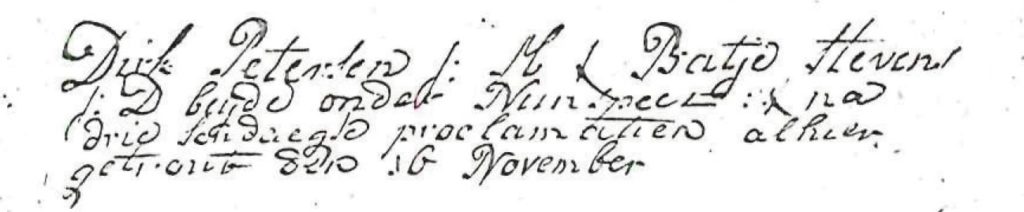 Dirk Petersen j: M & Batje Stevens
j: D beyde onder Nunspeet : & na
drie sondaegse proclamatien alhier
getrout den 16 November